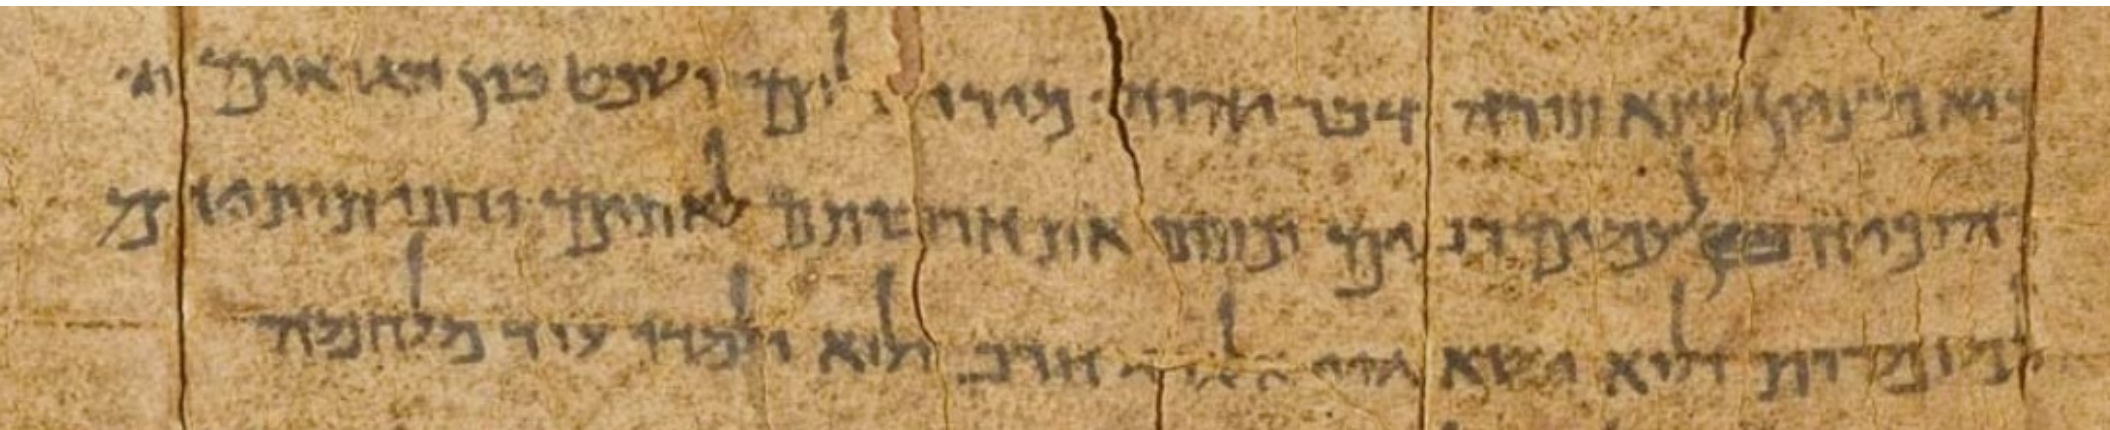 כיא מציון תצא תורה ודבר יהוה מירושלים ושפט בין הגואים
והוכיח בין לעמים רבים וכתתו את חרבותם לאתים וחניתותיהם
למזמרות ולוא ישא גוי אל גוי חרב ולוא ילמדו עוד מלחמה